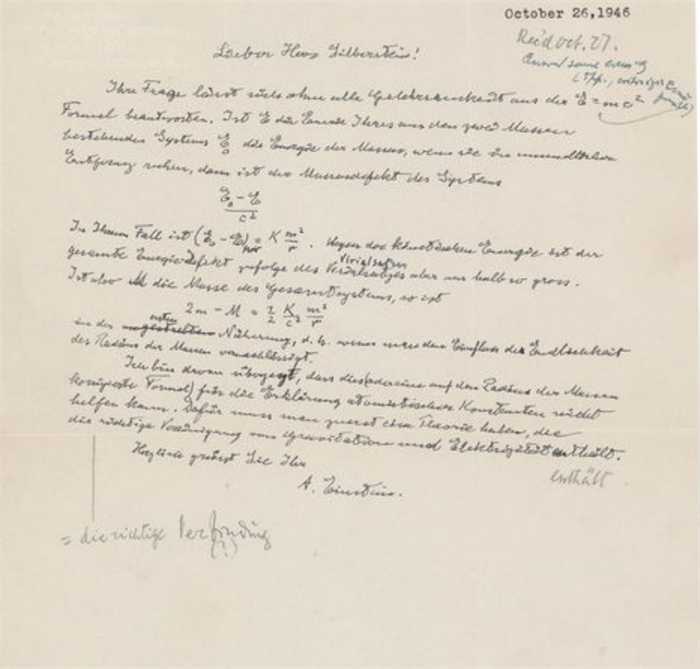 October 26, 1946
Rec'd Oct. 27.
Lieber Herr Silberstein!
Ihre Frage lässt sich ohne alle Gelehrsamkeit aus der E = mc²
Formel beantworten. Ist E die Energie Ihres aus den zwei Massen
bestehenden Systems E₀ die Energie der Massen, wenn sie in unendlicher
Entfernung ruhen, dann ist der Massendefekt des Systems
E₀ - E
c²
In Ihrem Fall ist (E₀ - E) = K m²/r . Wegen der kinetischen Energie ist der
gesamte Energiedefekt zufolge des Virialsatzes aber nur halb so gross.
Ist also M die Masse des Gesamtsystems, so ist
2m - M = 1/2 K/c² m²/r
in der ersten Näherung, d. h. wenn man den Einfluss der Endlichkeit
des Radius der Massen vernachlässigt.
Ich bin davon überzeugt, dass dies (oder eine auf den Radius der Massen
korrigierte Formel) für die Erklärung atomistischer Konstanten nicht
helfen kann. Dafür muss man zuerst eine Theorie haben, die
die richtige Vereinigung von Gravitation und Elektrizität enthält.
Herzlich grüsst Sie Ihr
enthält
A. Einstein.
= die richtige Verbindung
(?)